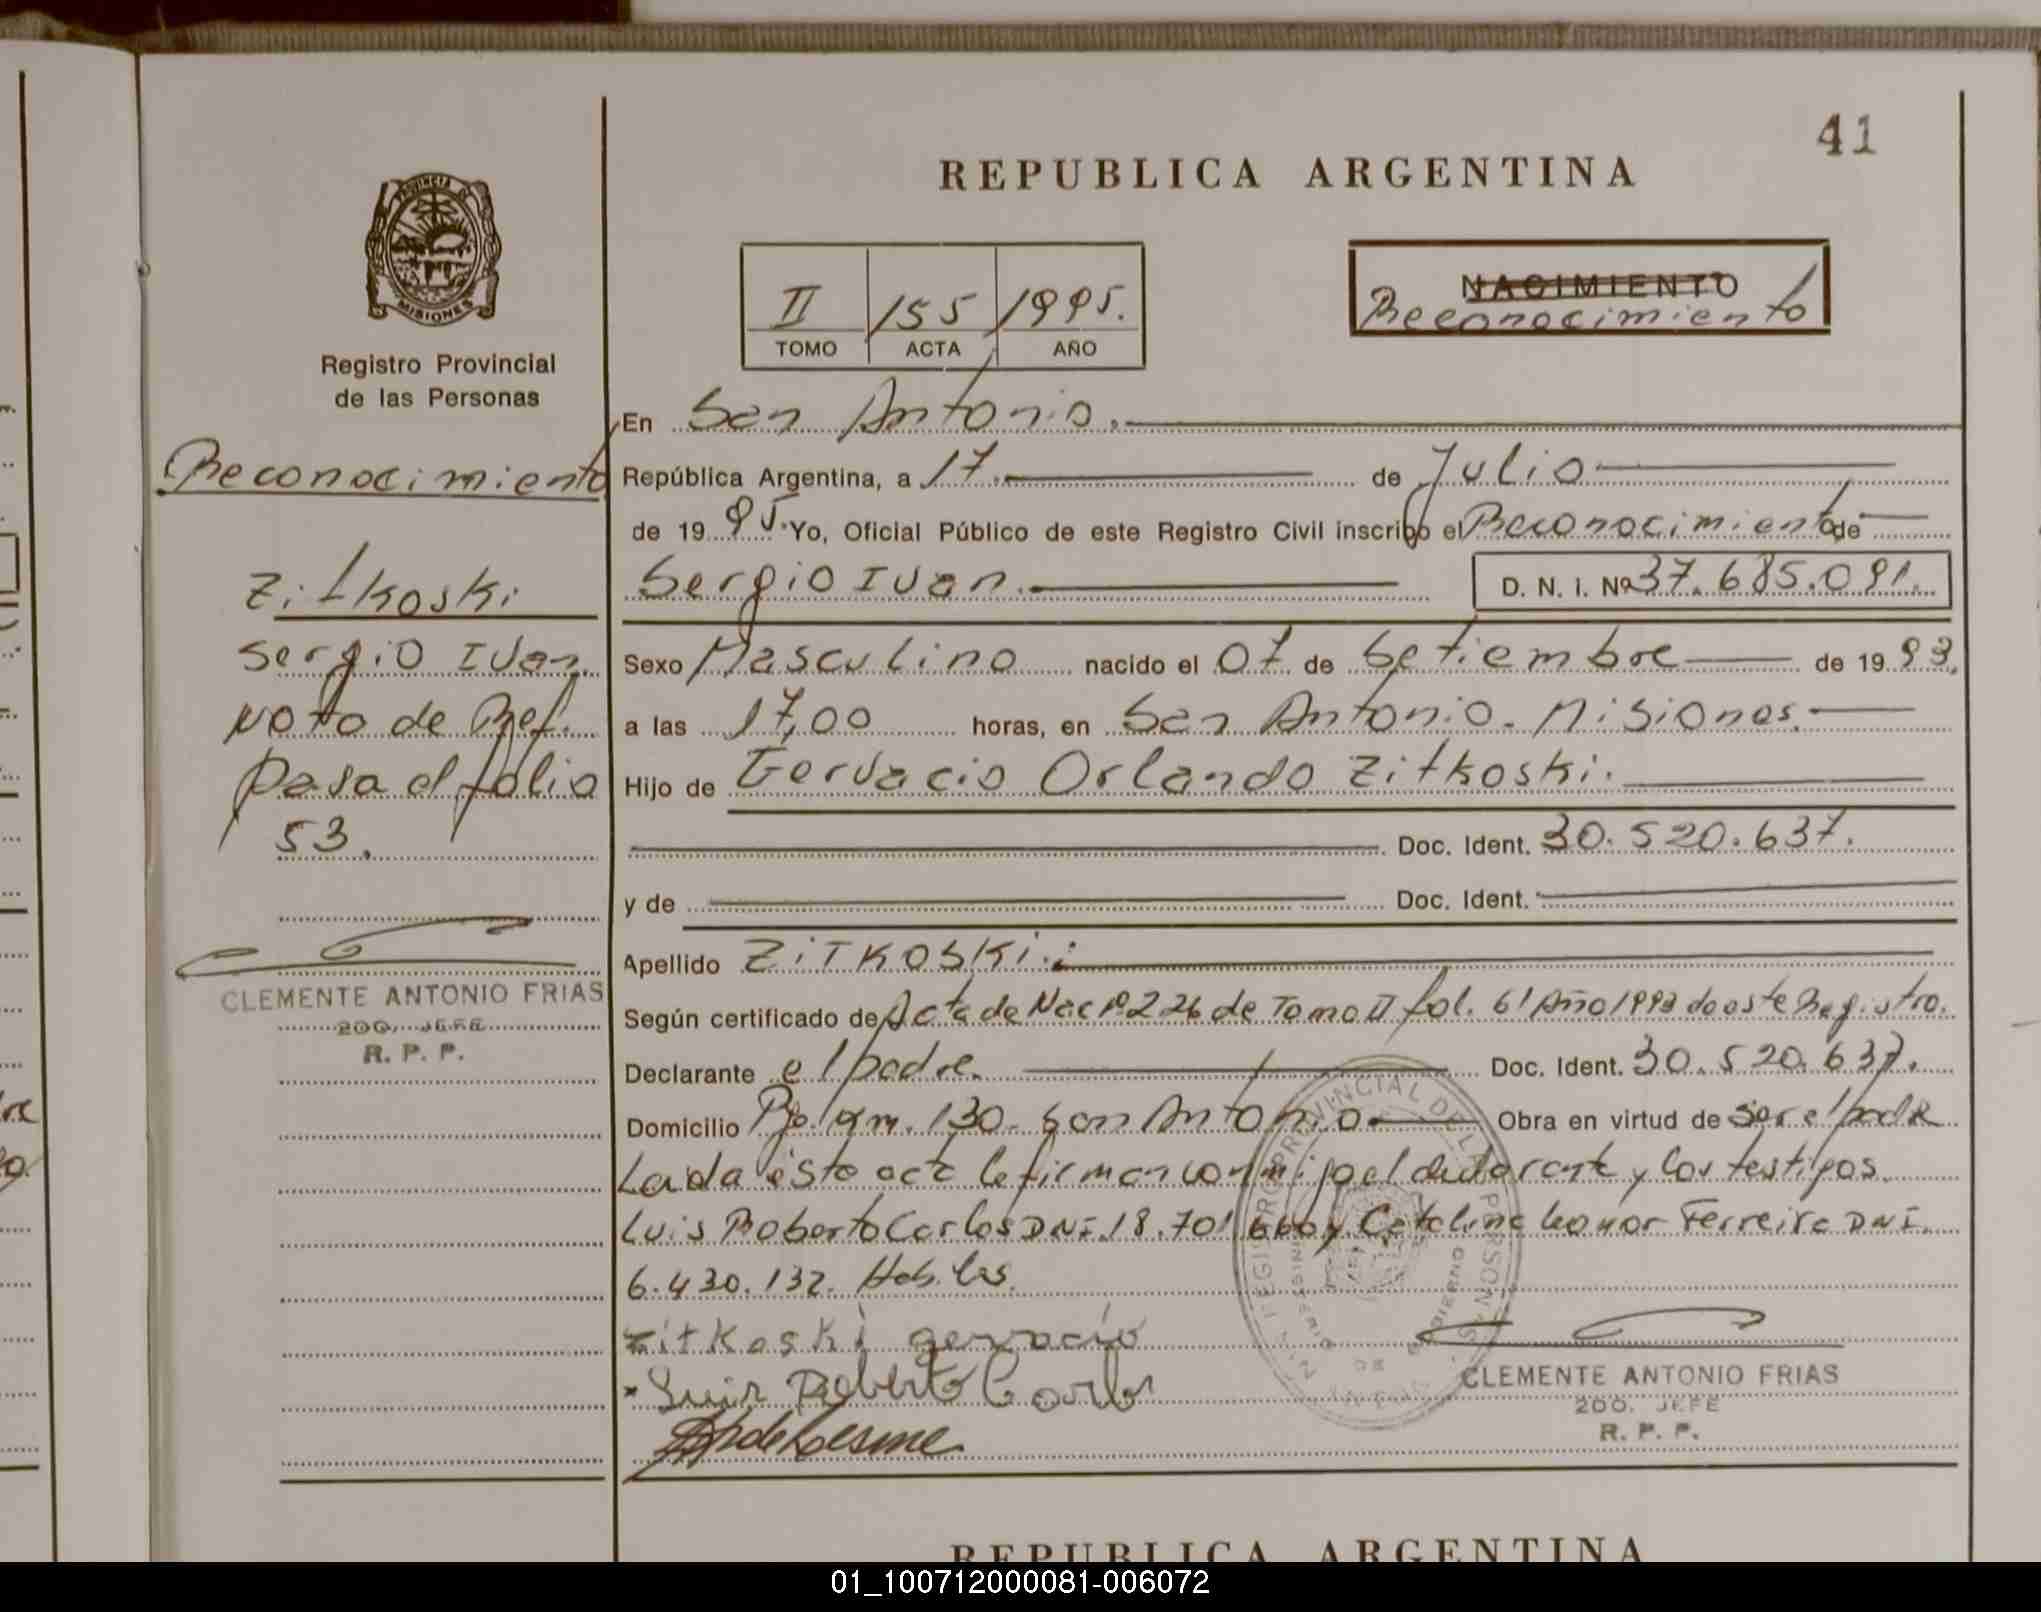 41
REPUBLICA ARGENTINA
PROVINCIA DE
MISIONES
Registro Provincial
de las Personas
II 155 1995.
TOMO ACTA AÑO
NACIMIENTO
Reconocimiento
Reconocimiento
Zitkoski
Sergio Ivan.
Nota de Ref.
Pasa el folio
53.
CLEMENTE ANTONIO FRIAS
200. JEFE
R. P. P.
En San Antonio.
República Argentina, a 17. de Julio
de 19 95. Yo, Oficial Público de este Registro Civil inscribo el Reconocimiento de
Sergio Ivan. D. N. I. Nº 37.685.091.
Sexo Masculino nacido el 07 de Setiembre de 19 93.
a las 17,00 horas, en San Antonio. Misiones.
Hijo de Gervacio Orlando Zitkoski.
Doc. Ident. 30.520.637.
y de Doc. Ident.
Apellido ZITKOSKI.
Según certificado de Acta de Nac Nº 226 de Tomo II fol. 61 Año 1993 de este Registro.
Declarante el padre. Doc. Ident. 30.520.637.
Domicilio Pje. Km. 130. San Antonio Obra en virtud de ser el padre
Leida ésta acta la firman conmigo el declarante y los testigos
Luis Roberto Carlos DNI. 18.701.660 y Catalina Leonor Ferreira DNI.
6.430.132. Hab. les.
zitkoski gervacio
Luis Roberto Carlos
CLEMENTE ANTONIO FRIAS
200. JEFE
R. P. P.
REPUBLICA ARGENTINA
01_100712000081-006072